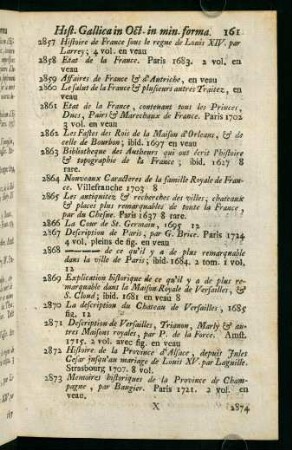 Hist. Gallica in Oct. in min. forma. 161
2857 Histoire de France sous le regne de Louis XIV. par
Larrey; 4 vol. en veau
2858 Etat de la France. Paris 1683. 2 vol. en
veau
2859 Affaires de France & d'Autriche, en veau
2860 Le salut de la France & plusieurs autres Traitez, en
veau
2861 Etat de la France, contenant tous les Princes,
Ducs, Pairs & Marechaux de France. Paris 1702
3 vol. en veau
2862 Les Fastes des Rois de la Maison d'Orleans, & de
celle de Bourbon; ibid. 1697 en veau
2863 Bibliotheque des Autheurs qui ont écrit l'histoire
& topographie de la France; ibid. 1627 8
rare.
2864 Nouveaux Caracteres de la famille Royale de Fran-
ce. Villefranche 1703 8
2865 Les antiquitez & recherches des villes; chateaux
& places plus remarquables de toute la France,
par du Chesne. Paris 1637 8 rare.
2866 La Cour de St. Germain, 1695 12
2867 Description de Paris; par G. Brice. Paris 1724
4 vol. pleins de fig. en veau
2868 ——— de ce qu'il y a de plus remarquable
dans la ville de Paris; ibid. 1684. 2 tom. 1 vol.
12
2869 Explication historique de ce qu'il y a de plus re-
marquable dans la Maison Royale de Versailles, &
S. Cloud; ibid. 1681 en veau 8
2870 La description du Chateau de Versailles, 1685
fig. 12
2871 Description de Versailles, Trianon, Marly & au-
tres Maisons royales, par P. de la Force. Amst.
1715. 2 vol. avec fig. en veau
2872 Histoire de la Province d'Alsace, depuis Jules
Cesar jusqu'au mariage de Louis XV. par Laguille.
Strasbourg 1707. 8 vol.
2873 Memoires historiques de la Province de Cham-
pagne, par Baugier. Paris 1721. 2 vol. en
veau.
X 2874